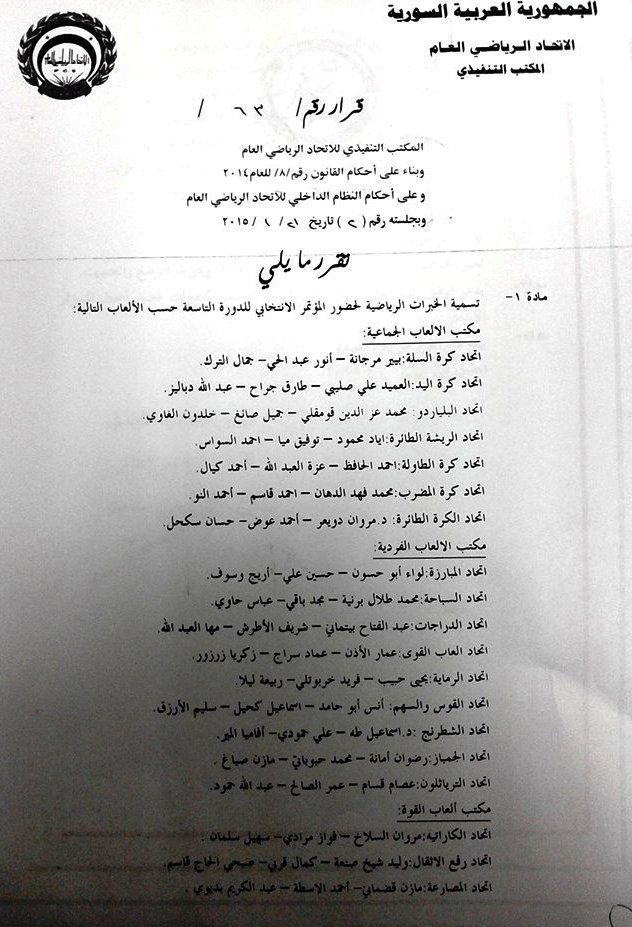 الجمهورية العربية السورية
الاتحاد الرياضي العام
المكتب التنفيذي
قرار رقم / ٦٣ /
المكتب التنفيذي للاتحاد الرياضي العام
وبناء على أحكام القانون رقم/٨/ للعام ٢٠١٤
وعلى أحكام النظام الداخلي للاتحاد الرياضي العام
وبجلسته رقم (٢) تاريخ ٢١/ ١ /٢٠١٥
تقرر ما يلي
مادة ١- تسمية الخبرات الرياضية لحضور المؤتمر الانتخابي للدورة التاسعة حسب الألعاب التالية:
مكتب الالعاب الجماعية:
اتحاد كرة السلة:بيير مرجانة – أنور عبد الحي– جمال الترك.
اتحاد كرة اليد:العميد علي صليبي – طارق جراح – عبد الله دباليز.
اتحاد البلياردو: محمد عز الدين قومقلي – جميل صانغ – خلدون الغاوي.
اتحاد الريشة الطائرة:اياد محمود – توفيق ميا – احمد السواس.
اتحاد كرة الطاولة:احمد الحافظ – عزة العبد الله – أحمد كيال.
اتحاد كرة المضرب:محمد فهد الدهان – احمد قاسم – أحمد النو.
اتحاد الكرة الطائرة: د.مروان دويعر – أحمد عوض– حسان سكحل.
مكتب الالعاب الفردية:
اتحاد المبارزة:لواء أبو حسون – حسين علي– أريج وسوف.
اتحاد السباحة:محمد طلال برنية – مجد باقي– عباس حاوي.
اتحاد الدراجات:عبد الفتاح بيتماني – شريف الأطرش – مها العبد الله.
اتحاد العاب القوى:عمار الأذن – عماد سراج – زكريا زرزور.
اتحاد الرماية:يحيى حبيب – فريد خربوتلي– ربيعة ليلا.
اتحاد القوس والسهم: أنس أبو حامد – اسماعيل كحيل – سليم الأزرق.
اتحاد الشطرنج :د.اسماعيل طه – علي حمودي– أفاميا المير.
اتحاد الجمباز:رضوان أمانة – محمد حبوباتي – مازن صباغ .
اتحاد الترياثلون:عصام قسام – عمر الصالح – عبد الله حمود.
مكتب ألعاب القوة:
اتحاد الكاراتيه:مروان السلاخ – فواز مرادي– سهيل سلمان .
اتحاد رفع الاثقال:وليد شيخ صنعة – كمال قربي– صبحي الحاج قاسم.
اتحاد المصارعة:مازن قضماني– أحمد الاسطة – عبد الكريم بديوي .